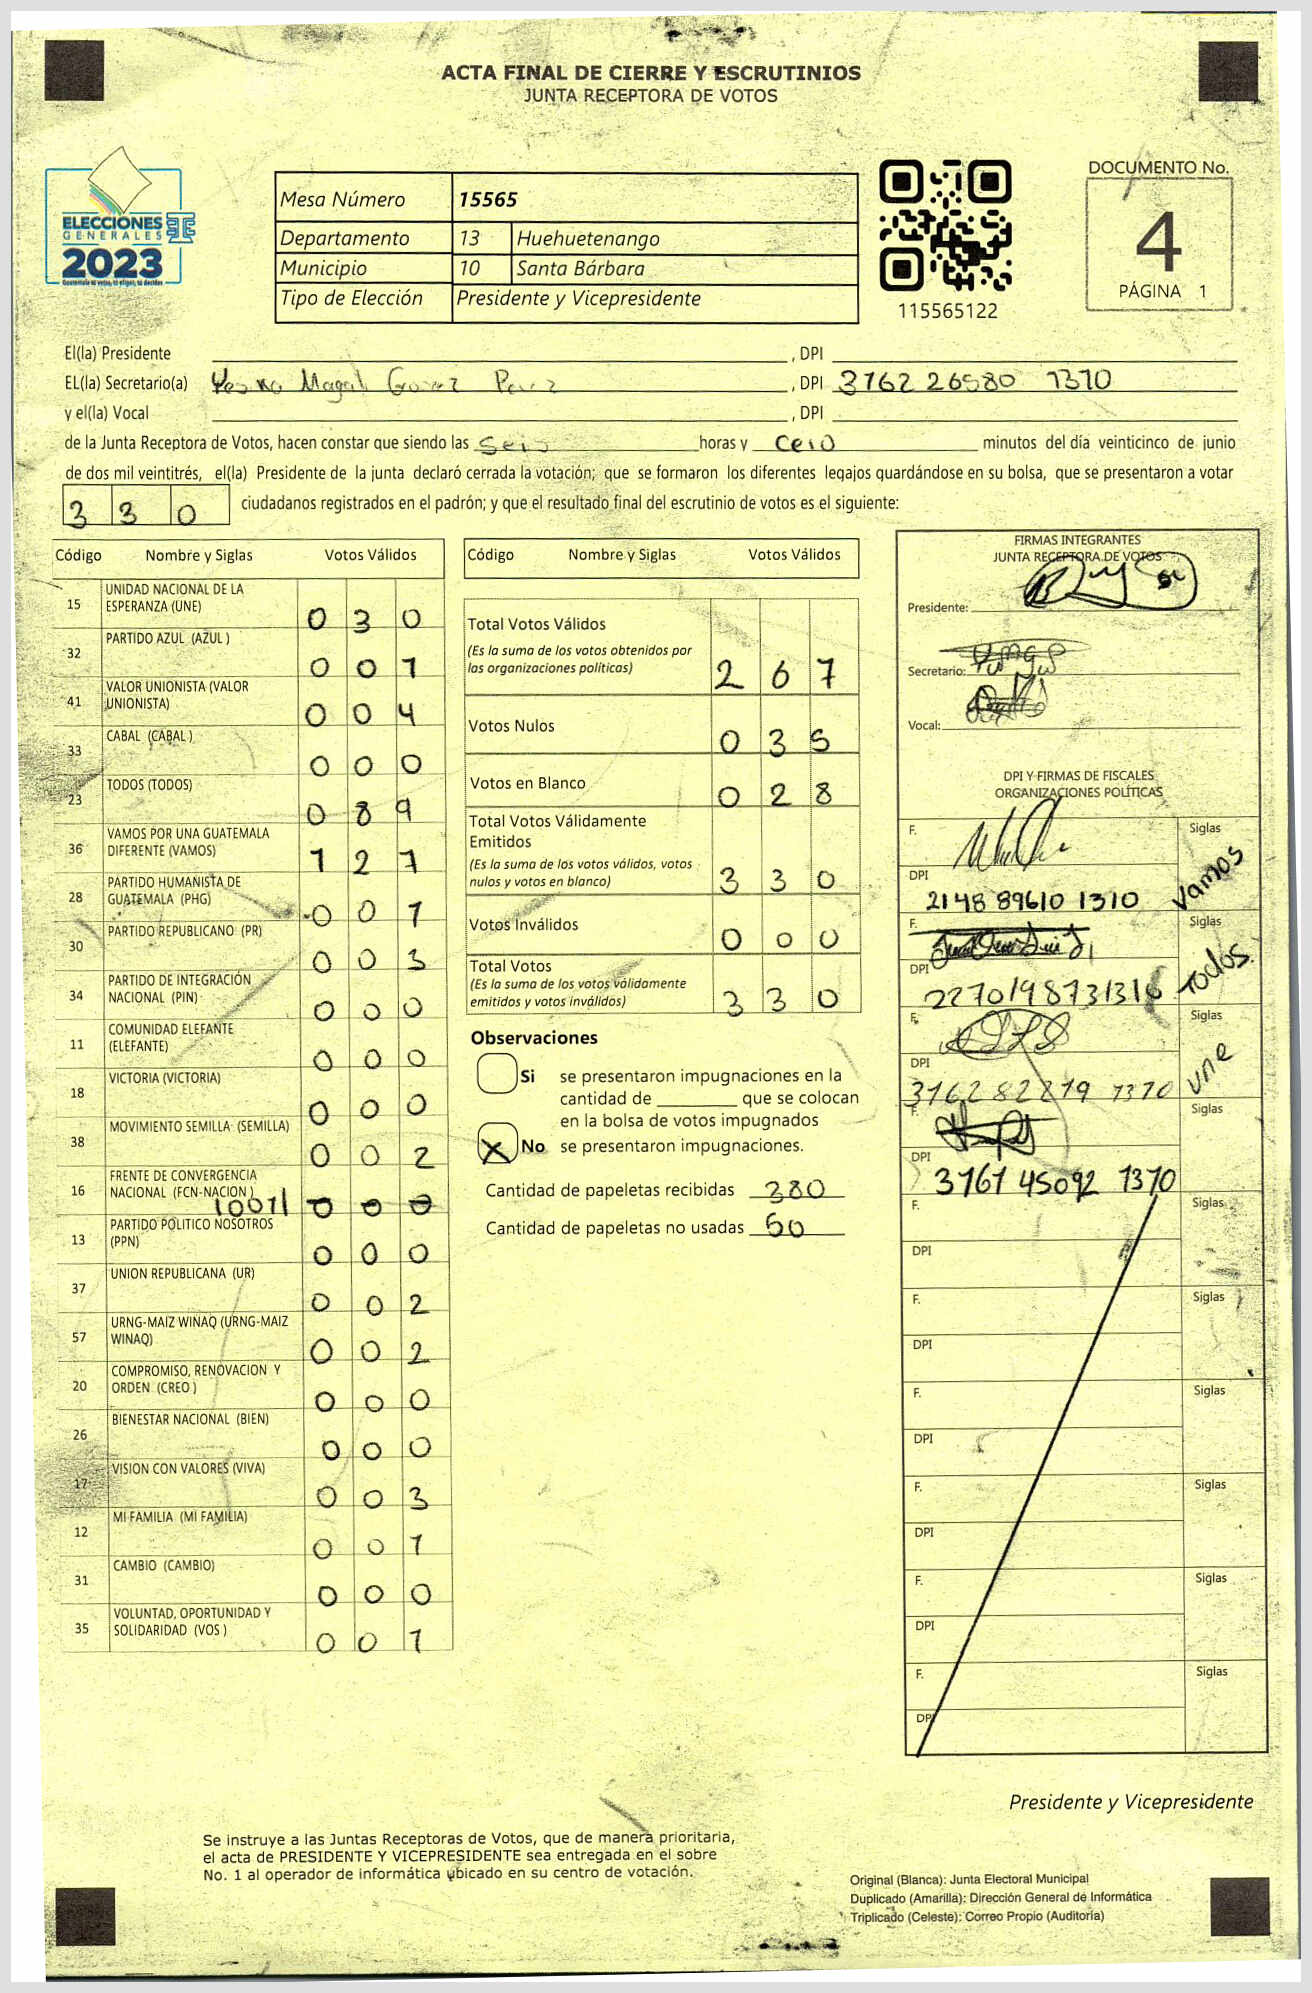 ACTA FINAL DE CIERRE Y ESCRUTINIOS
JUNTA RECEPTORA DE VOTOS
ELECCIONES
GENERALES
2023
Mesa Número 15565
Departamento 13 Huehuetenango
Municipio 10 Santa Bárbara
Tipo de Elección Presidente y Vicepresidente
115565122
DOCUMENTO No.
4
PÁGINA 1
El(la) Presidente , DPI
EL(la) Secretario(a) , DPI 3162 26580 1310
y el(la) Vocal , DPI
de la Junta Receptora de Votos, hacen constar que siendo las Seis horas y Cero minutos del día veinticinco de junio
de dos mil veintitrés, el(la) Presidente de la junta declaró cerrada la votación; que se formaron los diferentes legajos quardándose en su bolsa, que se presentaron a votar
3 3 0 ciudadanos registrados en el padrón; y que el resultado final del escrutinio de votos es el siguiente:
Código Nombre y Siglas Votos Válidos
15 UNIDAD NACIONAL DE LA
ESPERANZA (UNE) 0 3 0
32 PARTIDO AZUL (AZUL ) 0 0 1
41 VALOR UNIONISTA (VALOR
UNIONISTA) 0 0 4
33 CABAL (CABAL ) 0 0 0
23 TODOS (TODOS) 0 8 9
36 VAMOS POR UNA GUATEMALA
DIFERENTE (VAMOS) 1 2 7
28 PARTIDO HUMANISTA DE
GUATEMALA (PHG) 0 0 1
30 PARTIDO REPUBLICANO (PR) 0 0 3
34 PARTIDO DE INTEGRACIÓN
NACIONAL (PIN) 0 0 0
11 COMUNIDAD ELEFANTE
(ELEFANTE) 0 0 0
18 VICTORIA (VICTORIA) 0 0 0
38 MOVIMIENTO SEMILLA (SEMILLA) 0 0 2
16 FRENTE DE CONVERGENCIA
NACIONAL (FCN-NACION ) 0 0 0
13 PARTIDO POLITICO NOSOTROS
(PPN) 0 0 0
37 UNION REPUBLICANA (UR) 0 0 2
57 URNG-MAIZ WINAQ (URNG-MAIZ
WINAQ) 0 0 2
20 COMPROMISO, RENOVACION Y
ORDEN (CREO ) 0 0 0
26 BIENESTAR NACIONAL (BIEN) 0 0 0
17 VISION CON VALORES (VIVA) 0 0 3
12 MI FAMILIA (MI FAMILIA) 0 0 1
31 CAMBIO (CAMBIO) 0 0 0
35 VOLUNTAD, OPORTUNIDAD Y
SOLIDARIDAD (VOS ) 0 0 1
Código Nombre y Siglas Votos Válidos
Total Votos Válidos
(Es la suma de los votos obtenidos por
las organizaciones políticas) 2 6 7
Votos Nulos 0 3 5
Votos en Blanco 0 2 8
Total Votos Válidamente
Emitidos
(Es la suma de los votos válidos, votos
nulos y votos en blanco) 3 3 0
Votos Inválidos 0 0 0
Total Votos
(Es la suma de los votos válidamente
emitidos y votos inválidos) 3 3 0
Observaciones
Si se presentaron impugnaciones en la
cantidad de que se colocan
en la bolsa de votos impugnados
X No se presentaron impugnaciones.
Cantidad de papeletas recibidas 380
Cantidad de papeletas no usadas 50
FIRMAS INTEGRANTES
JUNTA RECEPTORA DE VOTOS
Presidente:
Secretario:
Vocal:
DPI Y FIRMAS DE FISCALES
ORGANIZACIONES POLÍTICAS
F. Siglas
DPI 2148 89610 1310 Vamos
F. Siglas
DPI 2270198731316 Todos.
F. Siglas
DPI 3162 82219 1310 Une
F. Siglas
DPI 3161 45092 1310
F. Siglas
DPI
F. Siglas
DPI
F. Siglas
DPI
F. Siglas
DPI
F. Siglas
DPI
F. Siglas
DPI
Presidente y Vicepresidente
Se instruye a las Juntas Receptoras de Votos, que de manera prioritaria,
el acta de PRESIDENTE Y VICEPRESIDENTE sea entregada en el sobre
No. 1 al operador de informática ubicado en su centro de votación.
Original (Blanca): Junta Electoral Municipal
Duplicado (Amarilla): Dirección General de Informática
Triplicado (Celeste): Correo Propio (Auditoría)